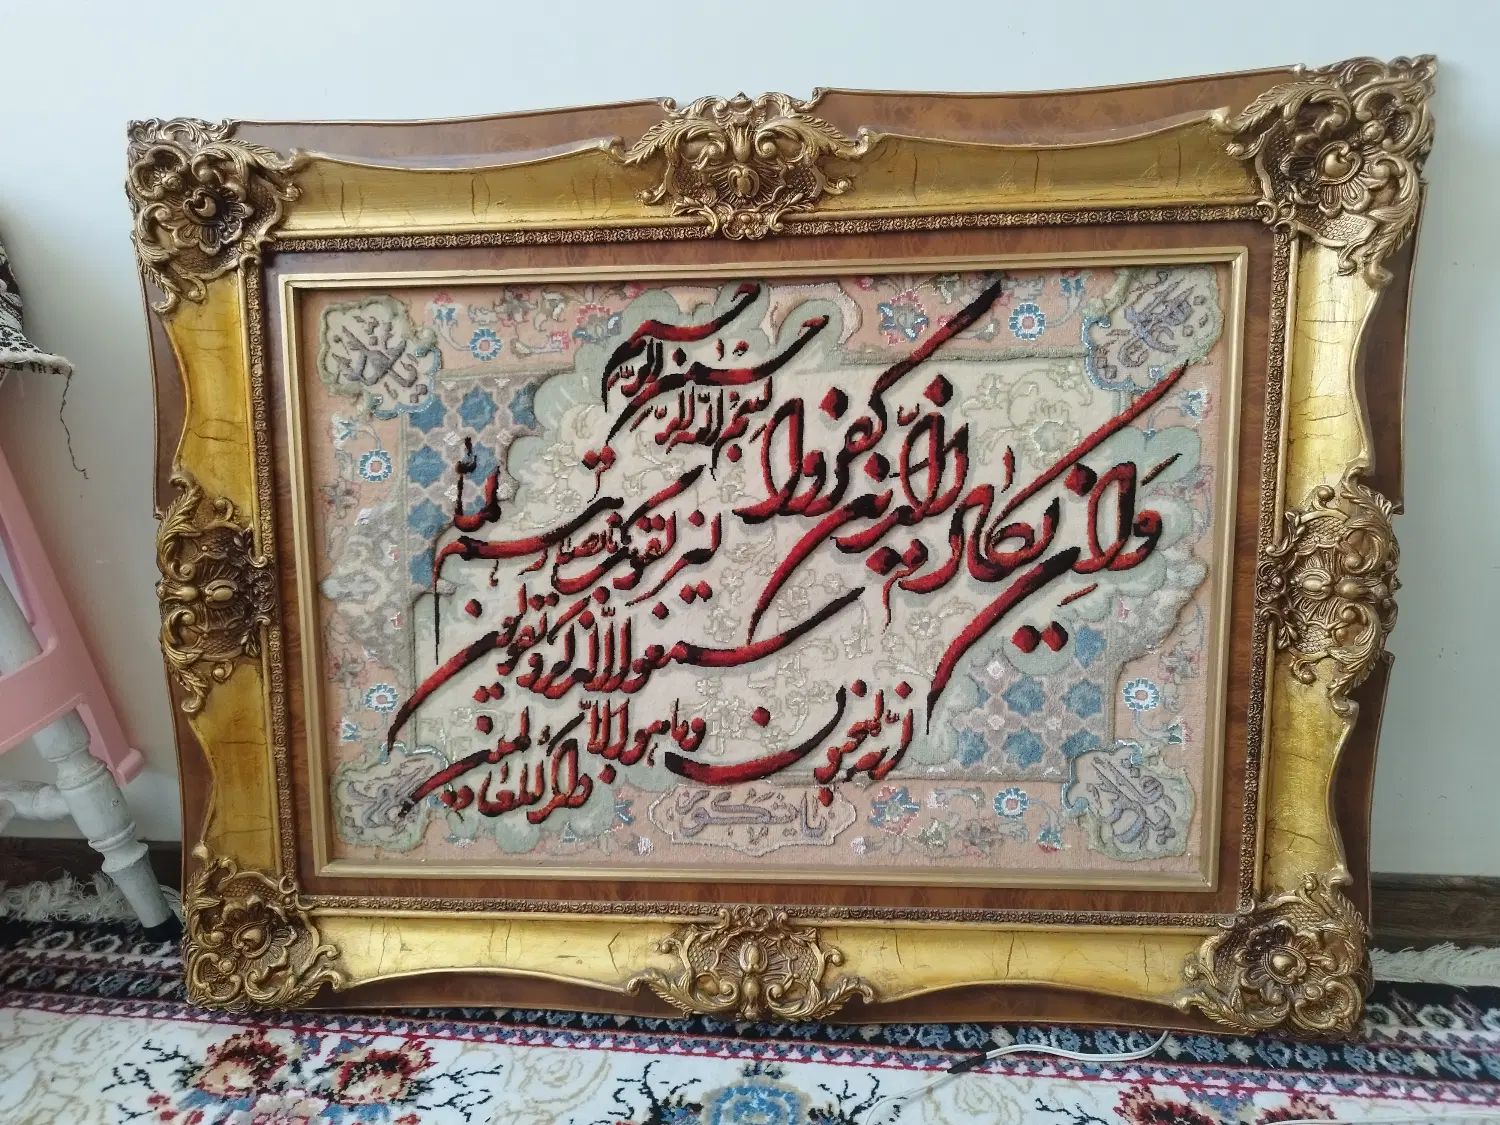 بسم الله الرحمن الرحیم
وان یکاد الذین کفروا
لیزلقونک بابصارهم لما
سمعوا الذکر و یقولون
انه لمجنون
وما هو الا ذکر للعالمین